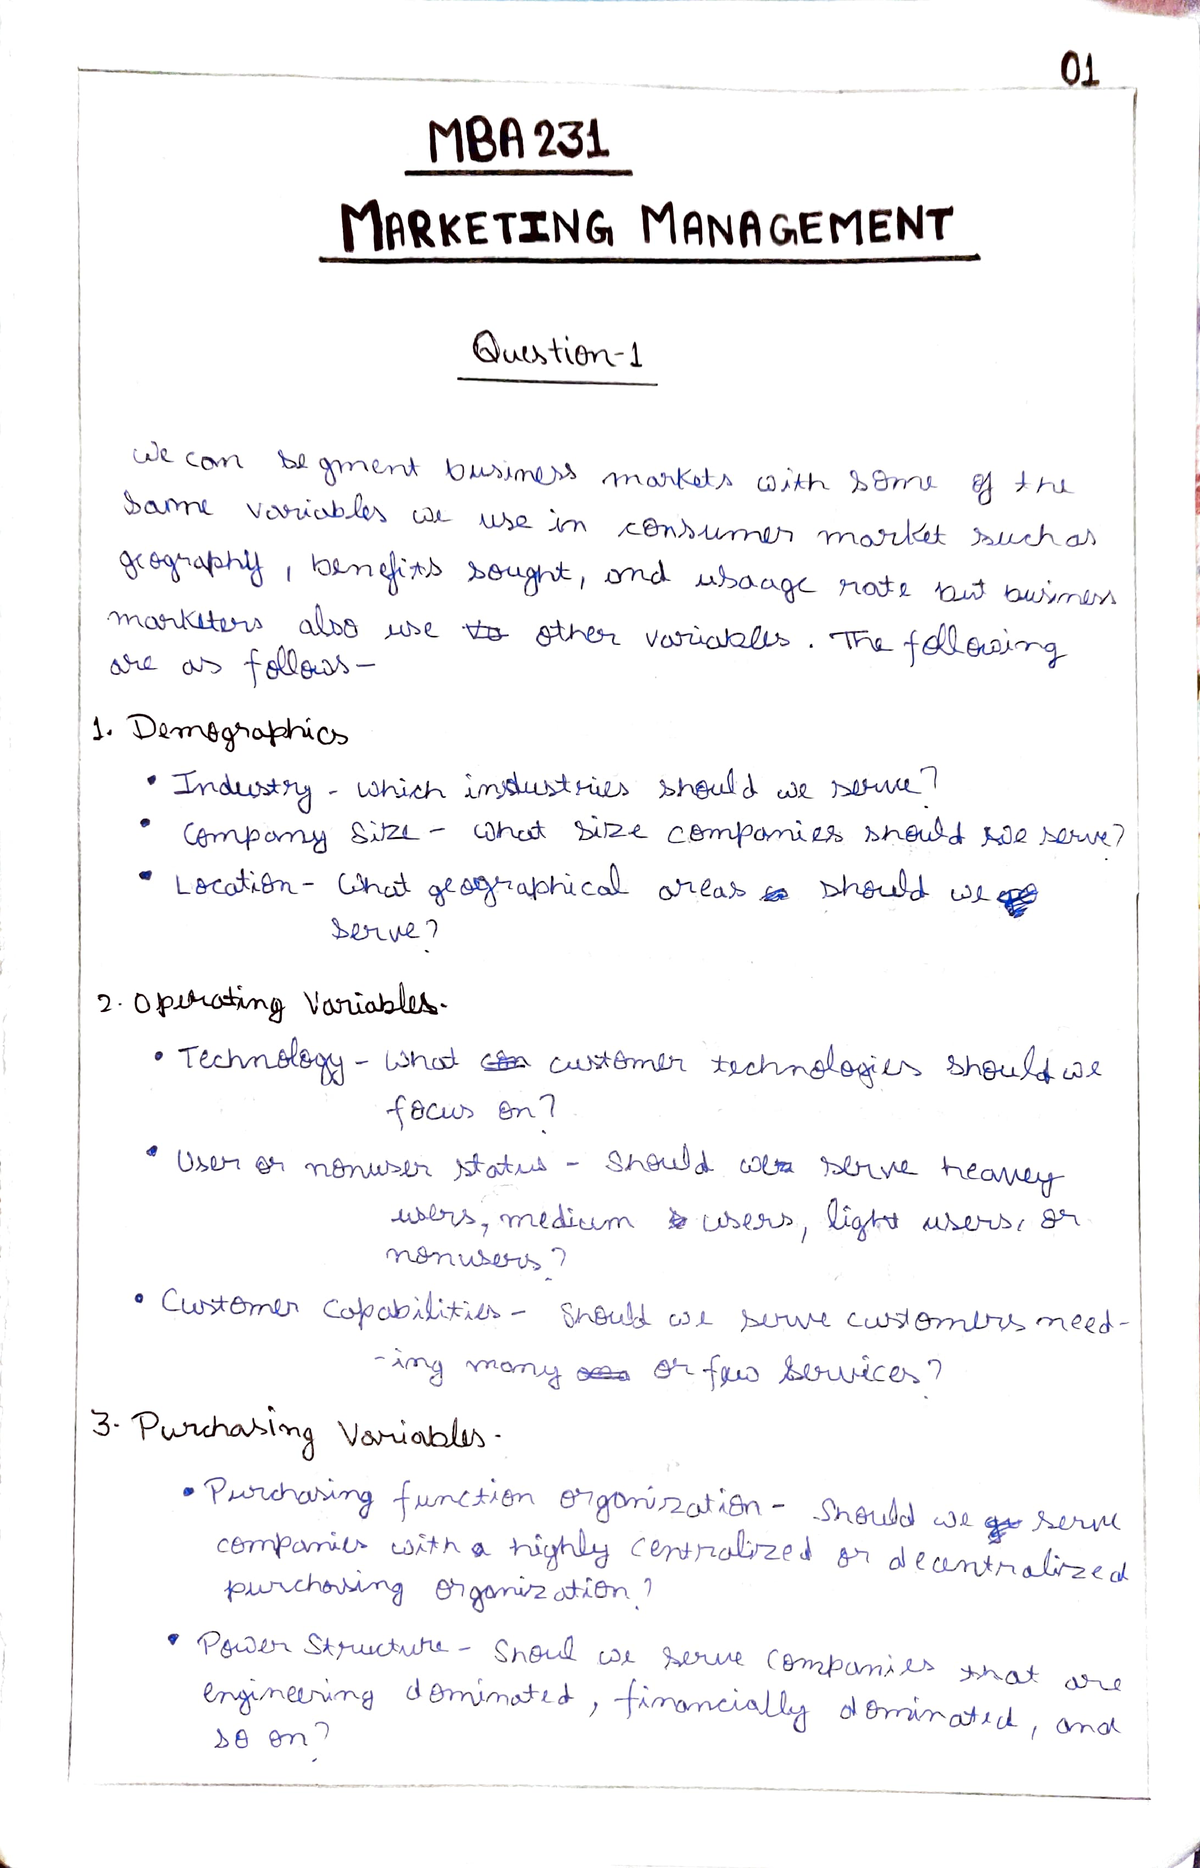 01
MBA 231
MARKETING MANAGEMENT
Question-1
We can segment business markets with some of the
same variables we use in consumer market such as
geography, benefits sought, and usaage rate but business
marketers also use to other variables. The following
are as follows-
1. Demographics
• Industry - which industries should we serve?
• Company Size - What size companies should we serve?
• Location - What geographical areas should we
serve?
2. Operating Variables.
• Technology - What customer technologies should we
focus on?
• User or nonuser status - Should we serve heavey
users, medium users, light users, or
nonusers?
• Customer capabilities - Should we serve customers need-
-ing many or few services?
3. Purchasing Variables.
• Purchasing function organization - Should we serve
companies with a highly centralized or decentralized
purchasing organization?
• Power Structure - Shoul we serve companies that are
engineering dominated, financially dominated, and
so on?